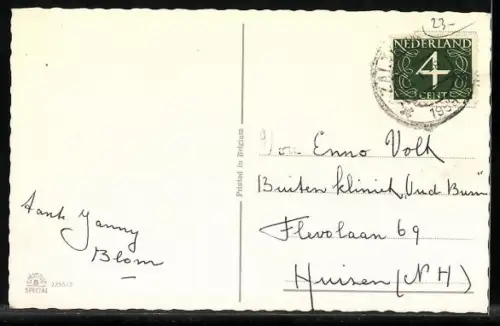 23-
NEDERLAND
4
CENT
Printed in Belgium
Von Enno Volk
Buiten kliniek "Oud Bussum"
Flevolaan 69
Huizen (NH)
Janny
Blom
SPECIAL